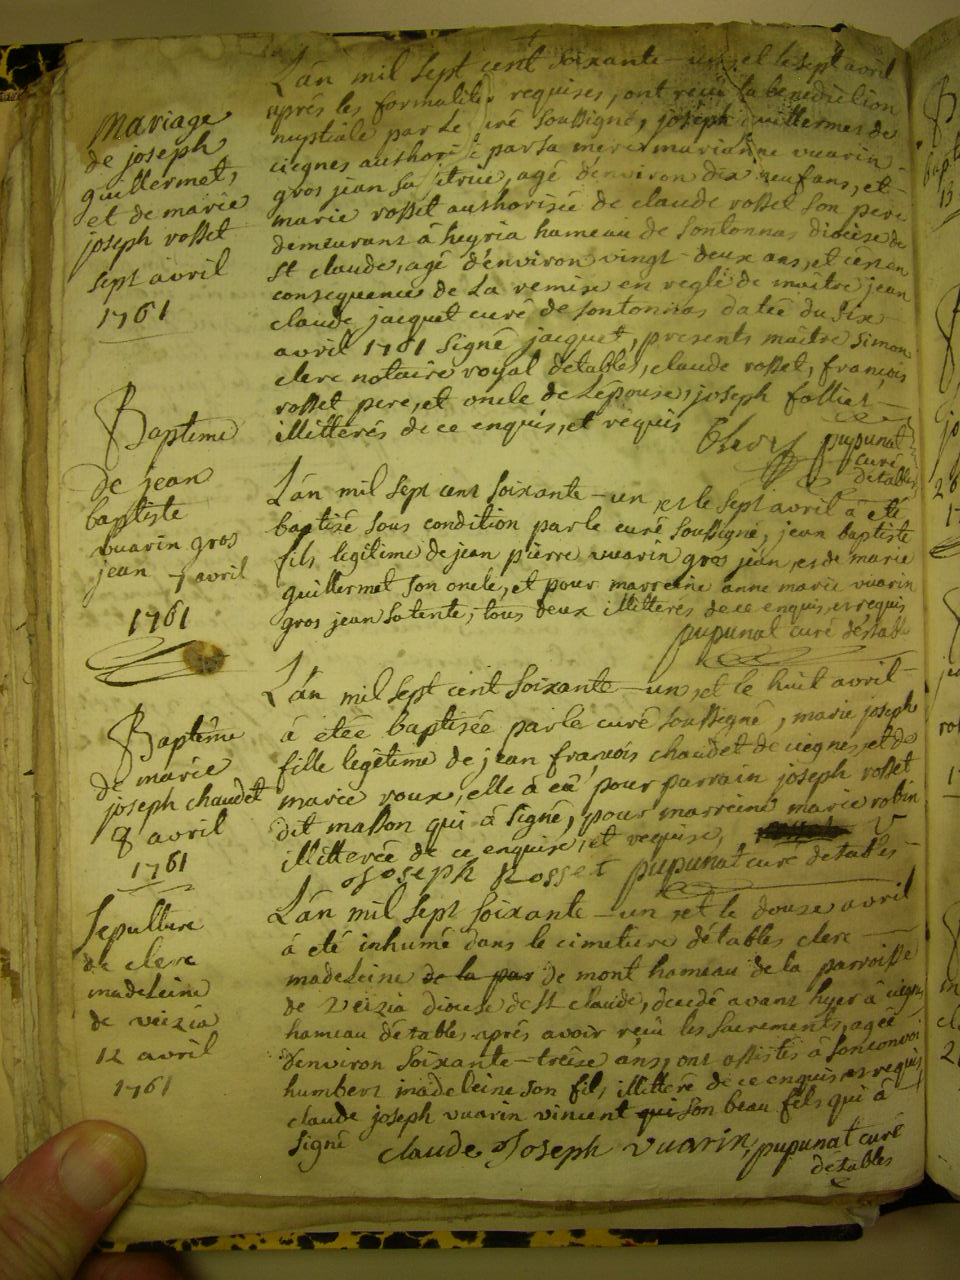 mariage
de joseph
guillermet,
et de marie
joseph rosset
sept avril
1761
L'an mil sept cent soixante-un, et le sept avril
aprés les formalités requises, ont reçu la benediction
nuptiale par le curé soussigné, joseph guillermet de
ciegnes authorisé par sa mere marianne vuarin
gros jean sa tutrice, agé d'environ dix neuf ans, et
marie rosset authorisée de claude rosset son pere
demeurant à heyria hameau de sontonnas diocèse de
st claude, agé d'environ vingt-deux ans, et ce en
consequence de la remise en regle de maitre jean
claude jacquet curé de sontonnas datée du six
avril 1761 signé jacquet, presents maitre simon
clerc notaire royal détables, claude rosset, françois
rosset pere, et oncle de l'épouse, joseph follier
illitterés de ce enquis, et requis
Clerc pupunat
curé
détables
Baptême
de jean
baptiste
vuarin gros
jean 7 avril
1761
L'an mil sept cent soixante-un et le sept avril à été
baptisé sous condition par le curé soussigné, jean baptiste
fils legitime de jean pierre vuarin gros jean, et de marie
guillermet son oncle, et pour marreine anne marie vuarin
gros jean sa tente, tous deux illitterés de ce enquis, et requis
pupunat curé détables
Baptême
de marie
joseph chaudet
8 avril
1761
L'an mil sept cent soixante-un, et le huit avril
à étée baptisée par le curé soussigné, marie joseph
fille legitime de jean françois chaudet de ciegnes, et de
marie roux, elle à eû pour parrain joseph rosset
dit masson qui à signé, pour marreine marie robin
illiterée de ce enquise, et requise,
Joseph Rosset pupunat curé detables
Sepulture
de clerc
madeleine
de veizia
12 avril
1761
L'an mil sept soixante-un et le douze avril
à été inhumé dans le cimetiere détables clerc
madeleine de la par de mont hameau de la parroisse
de veizia diocese de st claude, décédé avant hyer à ciegnes
hameau détables, aprés avoir reçû les sacrements, agée
d'environ soixante-treize ans, ont assistés à son convoi
humbert madeleine son fils, illitteré de ce enquis, et requis
claude joseph vuarin vincent qui son beau fils qui à
signé claude Joseph vuarin, pupunat curé
détables